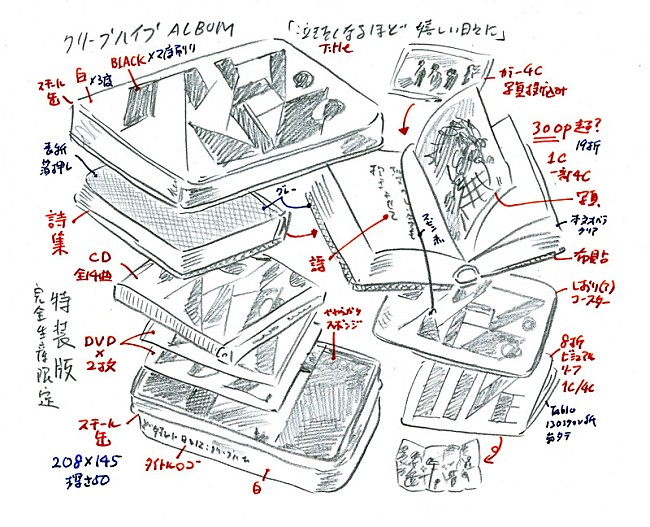 クリープハイプ ALBUM
「泣きたくなるほど嬉しい日々に」
Title
BLACK×2度刷り
白×3度
スチール
缶
カラー4C
写真投込み
300p超?
19折
1C
一部4C
写真
表紙
箔押し
グレー
詩集
詩
布貼
しおり(?)
コースター
CD
全14曲
DVD
×
2枚
特装版
完全生産限定
やわらかい
スポンジ
8折
ビジュアル
リーフ
1C/4C
スチール
缶
208×145
厚さ50
タイトルロゴ
白